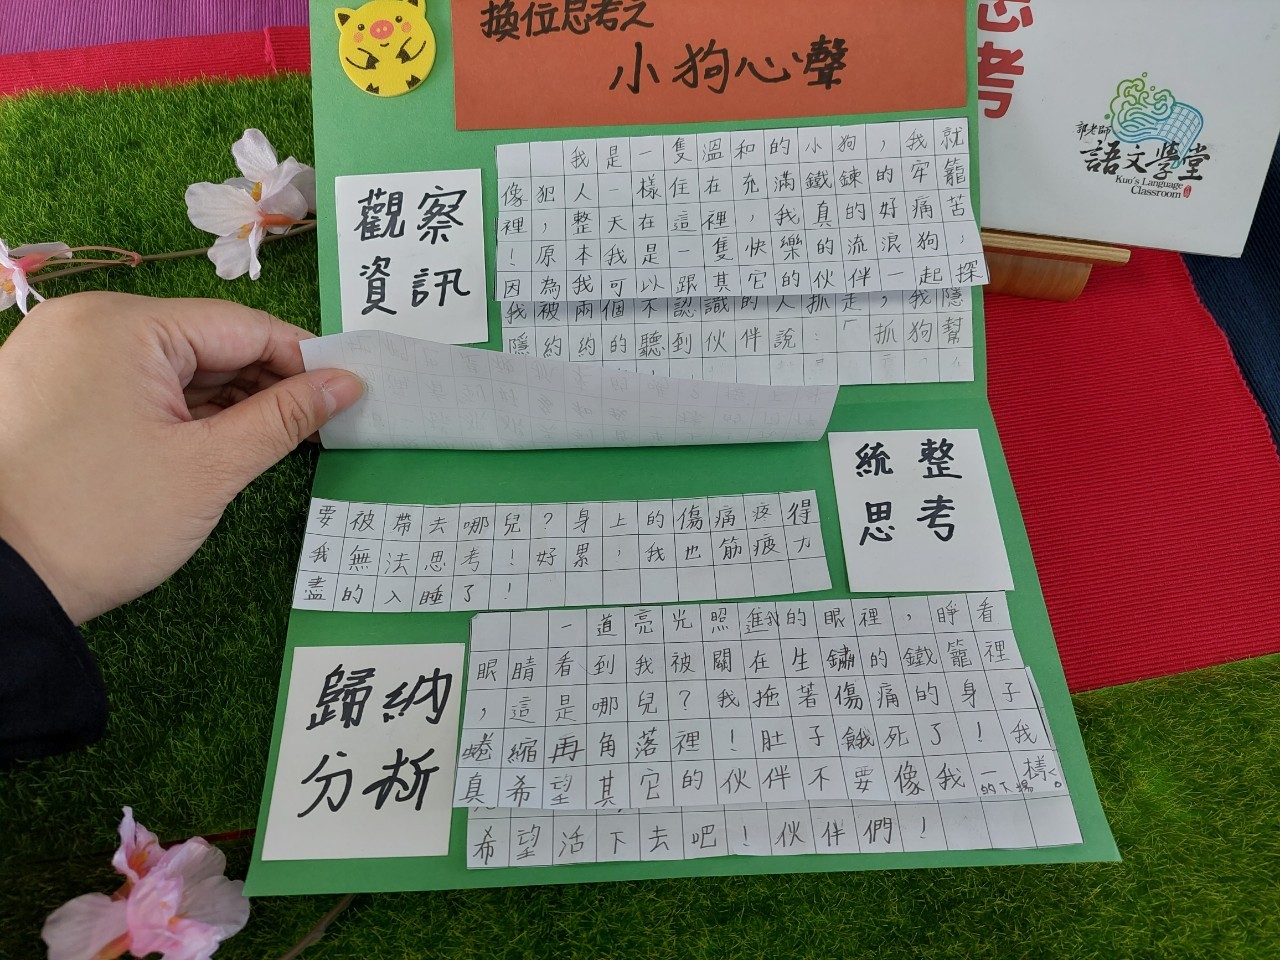 換位思考之
小狗心聲
思考
郭老師
語文學堂
Kuo's Language
Classroom
觀察
資訊
我是一隻溫和的小狗，我就
像犯人一樣住在充滿鐵鍊的牢籠
裡，整天在這裡，我真的好痛苦
！原本我是一隻快樂的流浪狗，
因為我可以跟其它的伙伴一起探
我被兩個不認識的人抓走，我隱
隱約約的聽到伙伴說：「抓狗幫
統整
思考
要被帶去哪兒？身上的傷痛疼得
我無法思考！好累，我也筋疲力
盡的入睡了！
歸納
分析
一道亮光照進我的眼裡，睜看
眼睛看到我被關在生鏽的鐵籠裡
，這是哪兒？我拖著傷痛的身子
蜷縮再角落裡！肚子餓死了！我
真希望其它的伙伴不要像我一樣
的下場。
希望活下去吧！伙伴們！